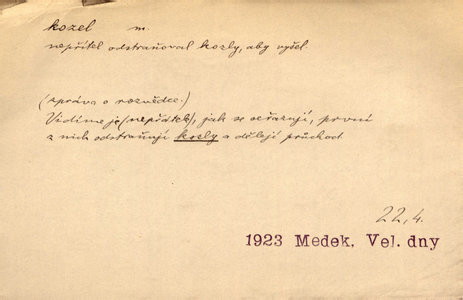 kozel m.
nepřítel odstraňoval kozly, aby vyšel.
(zpráva o rozvědce.)
Vidíme je (nepřátele), jak se seřazují, první
z nich odstraňují kozly a dělají průchod
22, 4.
1923 Medek. Vel. dny